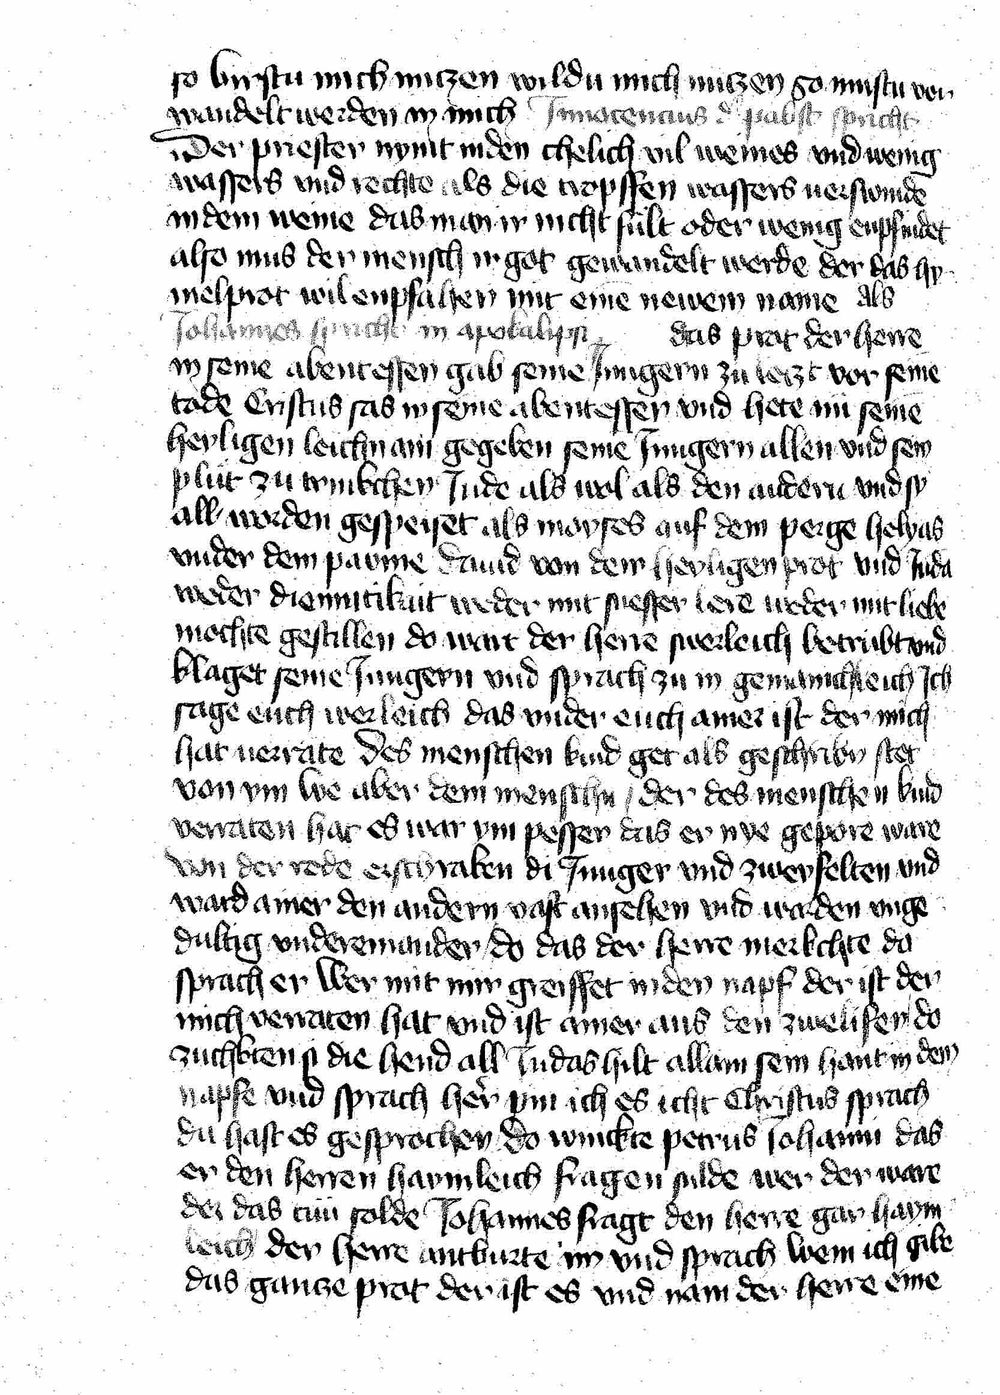 so wirstu mich nutzen wildu mich nutzen so mustu ver
wandelt werden in mich Innocencius d' pabst spricht
Der priester nymt in den chelich vil weines vnd wenig
wassers vnd rechte als die tropffen wassers verswinde
in dem weine das man ir nicht fült oder wenig enpfindet
also mus der mensch in got gewandelt werde der das hy
melprot wil enpfahen mit eine newem name als
Johannes spricht in apokalipsi das prot der herre
in seine abentessen gab seine Jungern zu letzt vor seine
tode Cristus sas in seine abentessen vnd hete nu seine
heyligen leichnam gegeben seine Jungern allen vnd sein
plut zu trinkchen Jude als wol als den andern vnd sy
all worden gespeiset als moyses auf dem perge helyas
vnder dem paume dauid von dem heyligen prot vnd Juda
weder diemutikait weder mit suesser lere weder mit liebe
mochte gestillen do wart der herre swerleich betrubt vnd
klaget seine Jungern vnd sprach zu in gemainchleich Ich
sage euch werleich das vnder euch ainer ist der mich
hat verrate Des menschen kind get als geschribn stet
von ym We aber dem menschn / der des menschen kind
verraten hat es war ym pesser das er nye gepore ware
von der rede erschraken di Junger vnd zweyfelten vnd
ward ainer den andern vast ansehen vnd worden vnge
dultig vndereinander do das der herre merkchte do
sprach er Wer mit mir greiffet in den napf der ist der
mich verraten hat vnd ist ainer aus den zwelifen do
zuchkten si die hend all Judas hilt allain sein hant in dem
napfe vnd sprach her pin ich es icht Christus sprach
du hast es gesprochen do winckte petrus Johanni das
er den herren haymleich fragen sulde wer der ware
der das tun solde Johannes fragt den herre gar haym
leich der herre antburte im vnd sprach Wem ich gibe
das gantze prot der ist es vnd nam der herre eine